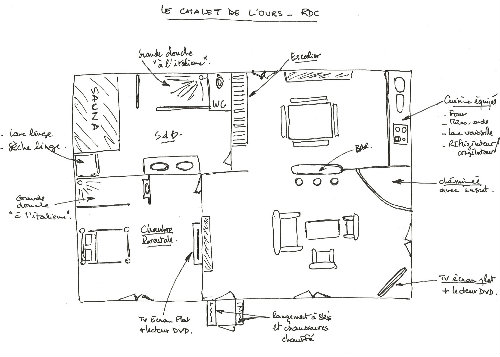 LE CHALET DE L'OURS - RDC
Grande douche
"à l'italienne"
Escalier
SAUNA
WC
Cuisine équipée
- Four
- Micro. onde
- Lave vaisselle
- Réfrigérateur/
congélateur
- Lave linge
- Sèche linge
SdB
BAR
Cheminée
avec insert
Grande
douche
"à l'italienne"
Chambre
Parentale
TV écran plat
+ lecteur DVD
TV Ecran Plat
+ lecteur DVD.
Rangement à skis
et chaussures
chauffé